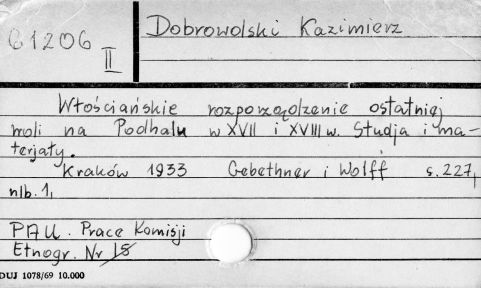 C1206
II
Dobrowolski Kazimierz
Włościańskie rozporządzenie ostatniej
woli na Podhalu w XVII i XVIII w. Studja i ma-
terjały.
Kraków 1933 Gebethner i Wolff s. 227,
nlb. 1,
PAU. Prace Komisji
Etnogr. Nr 15
DUJ 1078/69 10.000